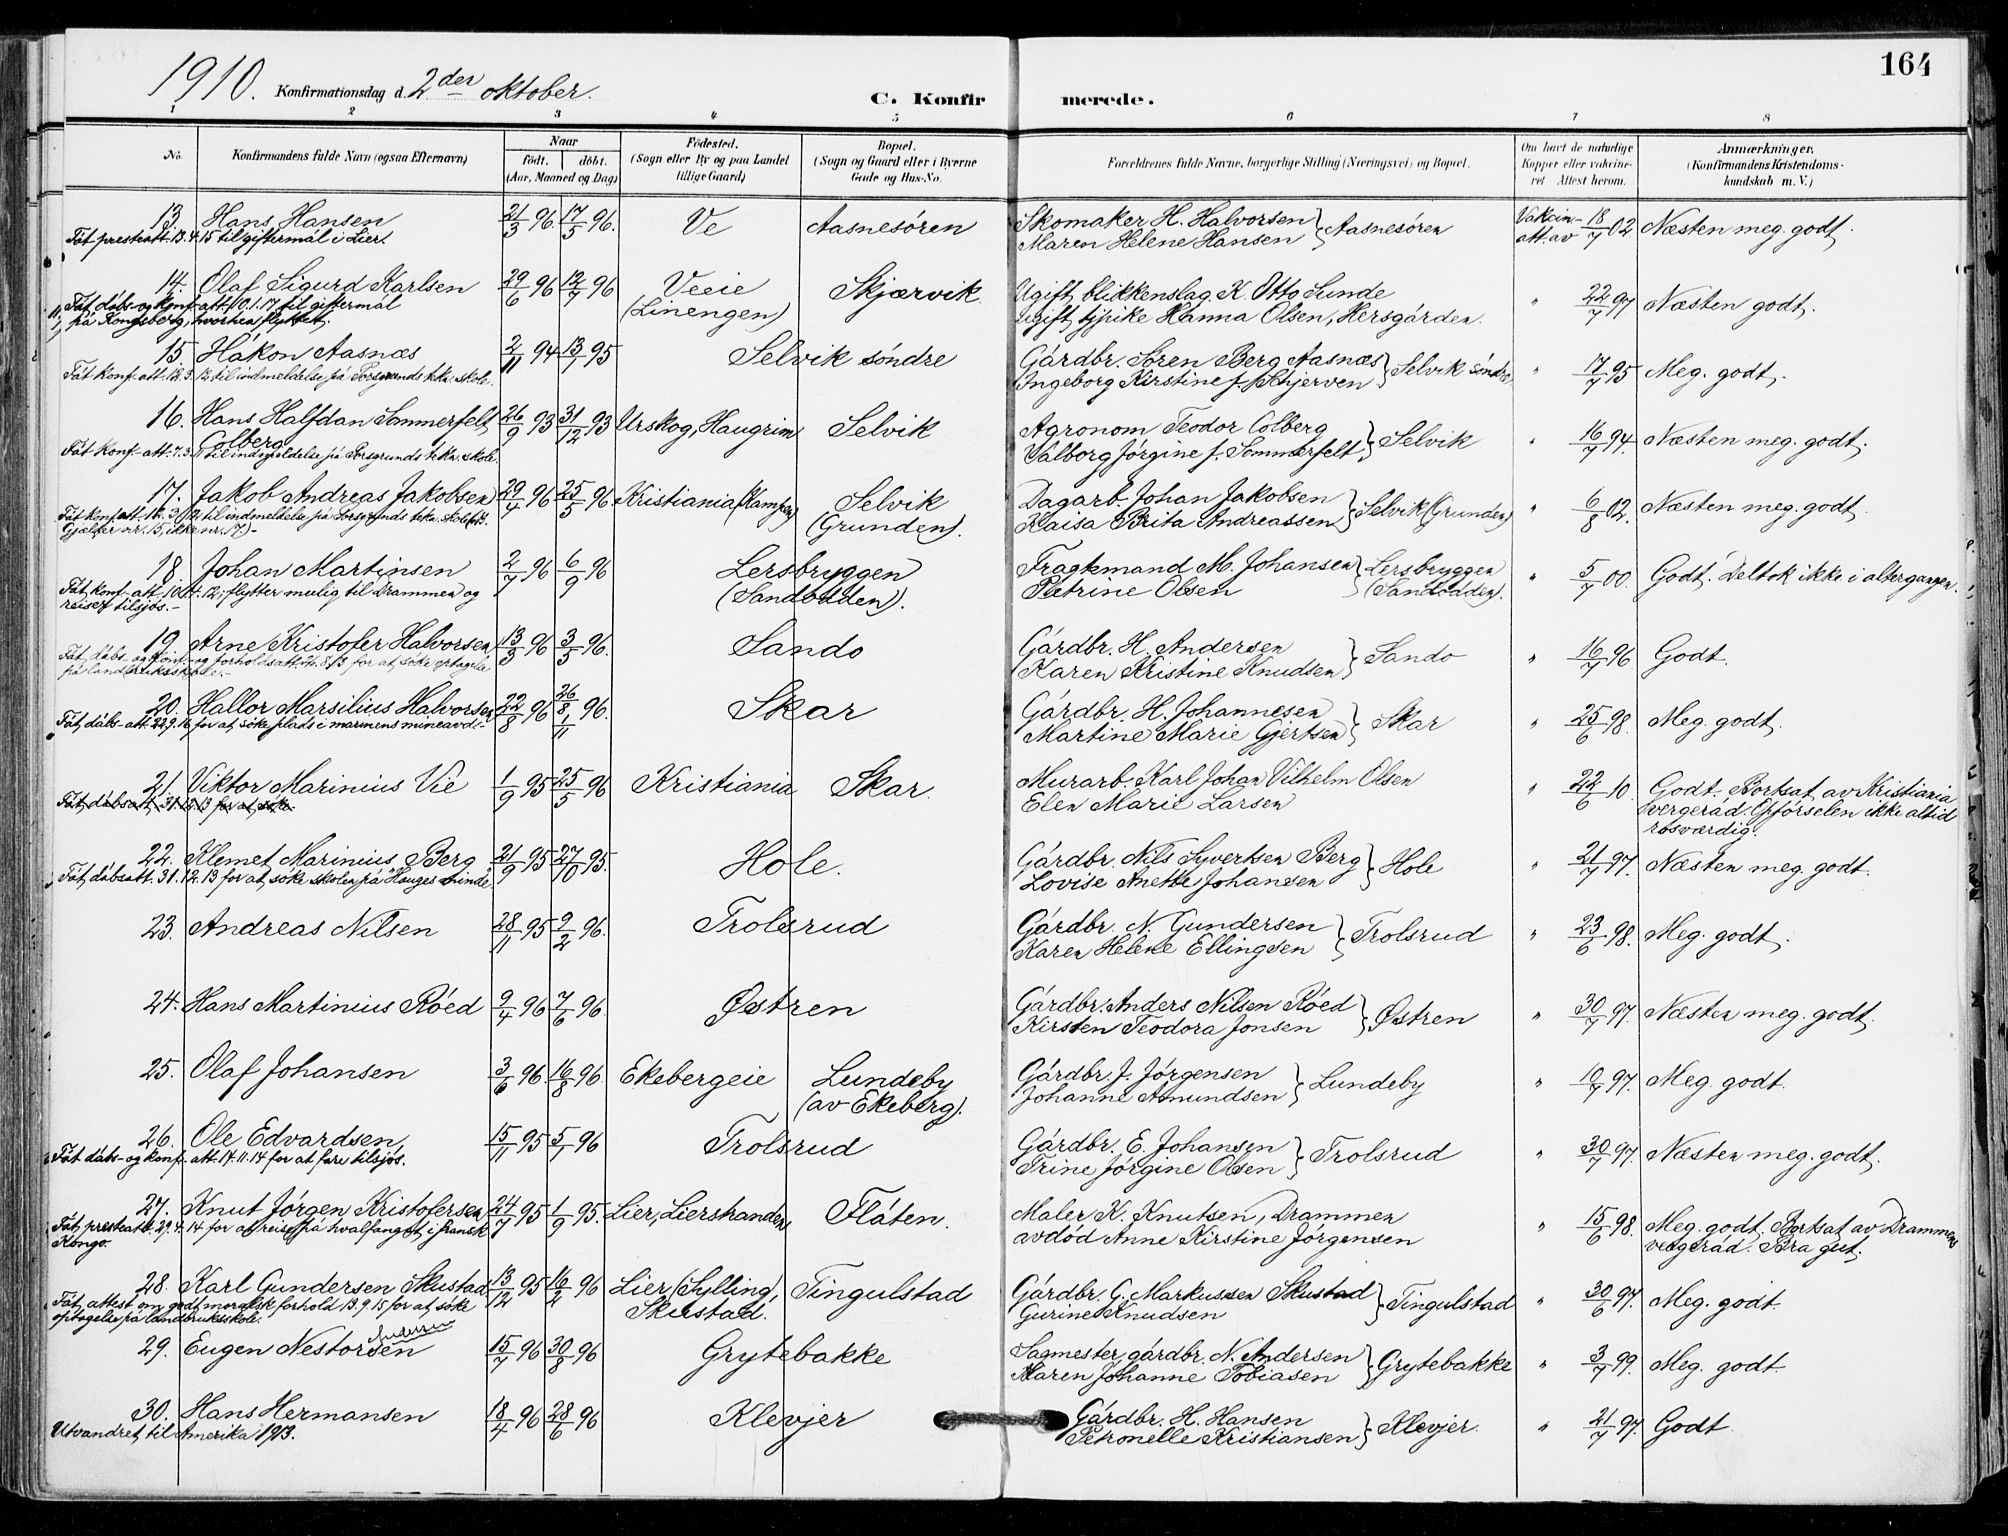 164
1910. Konfirmationsdag d. 2der oktober.
C. Konfirmerede.
1 2 3 4 5 6 7 8
No. Konfirmandens fulde Navn (ogsaa Efternavn) Naar födt. döbt. (Aar, Maaned og Dag) Födested. (Sogn eller By og paa Landet tillige Gaard) Bopæl. (Sogn og Gaard eller i Byerne Gade og Hus-No. Forældrenes fulde Navne, borgerlige Stilling (Næringsvei) og Bopæl. Om havt de naturlige Kopper eller vakcineret Attest herom. Anmærkninger. (Konfirmandens Kristendomskundskab m. V.)
13. Hans Hansen 21/3 96. 17/5 96. Ve Aasnesóren Skomaker H. Halvorsen Maren Helene Hansen } Aasnesóren Vakcin-att. av 18/7 02 Næsten meg. godt.
Fåt presteatt. 13.4.15 til giftermål i Lier.
14. Olaf Sigurd Karlsen 29/6 96 12/7 96 Veeie (Linengen) Skjærvik. Ugift blikkenslag. K. Otto Sunde Ugift typike Hanna Olsen, Hersgården. " 22/7 97 Næsten godt.
Fåt dåbs- og konf.-att. 10.1.17 til giftermål
på Kongsberg, hvorhen flyttet.
15. Håkon Aasnæs 2/11 94 13/1 95 Selvik sóndre Gårdbr. Sóren Berg Aasnæs Ingeborg Kirstine f. Skjerven } Selvik sóndre " 17/7 95 Meg. godt.
Fåt konf-att. 12.3.12 til indmeldelse på Porsgrunds tekn. skole.
16. Hans Halfdan Sommerfelt Colberg 26/9 93 31/12 93 Urskog, Haugrim Selvik Agronom Teodor Colberg Valborg Jórgine f. Sommerfelt } Selvik " 16/7 94 Næsten meg. godt.
Fåt konf-att. 7.3.11 til indmeldelse på Porsgrunds tekn. skole
17. Jakob Andreas Jakobsen 29/4 96 25/5 96. Kristiania (Kampen) Selvik (Grunden). Dagarb. Johan Jakobsen Kaisa Brita Andreassen } Selvik (Grunden) " 6/8 02. Næsten meg. godt.
Fåt konf. att. 12.3.12 til indmeldelse på Porsgrunds tekn. skole
Gjelder nr. 15, ikke nr. 17.-
18. Johan Martinsen 2/7 96 6/9 96 Lersbryggen (Sandodden). Fragtemand M. Johansen Petrine Olsen } Lersbryggen (Sandodden). " 5/7 00. Godt. Deltok ikke i altergangen.
Fåt konf. att. 12; flytter mulig til Drammen og
reiser tilsjós.-
19. Arne Kristofer Halvorsen 13/3 96 3/5 96. Sando Gårdbr. H. Andersen Karen Kristine Knudsen } Sando " 16/7 96 Godt.
Fåt dåbs- og konf.- og forholdsatt. 8.13 for at sóke optagelse
på landbruksskole.-
20. Hallor Marsilius Halvorsen 22/8 96 26/8 1/11 96. Skar Gårdbr. H. Johannesen Martine Marie Gjertsen } Skar " 25/6 98. Meg. godt.
Fåt dåbs-att. 22.9.16 for at sóke plads i marinens mineavd.-
21. Viktor Marinius Vie 1/9 95 25/5 96 Kristiania Skar. Murarb. Karl Johan Vilhelm Olsen Elen Marie Larsen " 22/6 10. Godt. Bortsat av Kristiania vergeråd. Opfórselen ikke altid rosværdig.
Fåt dåbsatt. 31.12.13 for at sóke
22. Klemet Marinius Berg 21/9 95 27/10 95. Hole. Gårdbr. Nils Syvertsen Berg Lovise Anette Johansen } Hole " 21/7 97. Næsten meg. godt.
Fåt dåbsatt. 31.12.13 for at sóke skolen på "Hauges minde"
23. Andreas Nilsen 28/11 95 9/2 96. Trolsrud Gårdbr. N. Gundersen Karen Helene Ellingsen } Trolsrud " 23/6 98. Meg. godt.
24. Hans Martinius Róed 9/4 96 7/6 96. Østren Gårdbr. Anders Nilsen Róed Kirsten Teodora Jonsen } Østren " 30/7 97. Næsten meg. godt.
25. Olaf Johansen 3/6 96. 16/8 96. Ekebergeie Lundeby (av Ekeberg). Gårdbr. J. Jórgensen Johanne Amundsen } Lundeby " 10/7 97. Meg. godt.
26. Ole Edvardsen 15/11 95 5/1 96 Trolsrud Gårdbr. E. Johansen Trine Jórgine Olsen } Trolsrud " 30/7 97. Næsten meg. godt.
Fåt dåbs- og konf.-att. 14.11.14 for at fare tilsjós.
27. Knut Jórgen Kristofersen 24/7 95 1/9 95. Lier, Lierstranden Flåten. Maler K. Knutsen, Drammen avdód Anne Kirstine Jórgensen " 15/6 98. Meg. godt. Bortsat av Drammens vergeråd. Bra gut.
Fåt presteatt. 29.4.14 for at reise på hvalfangst i fransk
Kongo.
28. Karl Gundersen Skustad 13/12 95 16/2 96 Lier (Sylling), Skustad. Tingulstad Gårdbr. G. Markussen Skustad Gurine Knudsen } Tingulstad " 30/6 97. Meg. godt.
Fåt attest om godt moralsk forhold 13.9.15 for at sóke
optagelse på landbruksskole.
29. Eugen Nestorsen Andersen 15/7 96 30/8 96 Grytebakke Sagmester, gårdbr. N. Andersen Karen Johanne Tobiasen } Grytebakke " 3/7 99. Meg. godt.
30. Hans Hermansen 18/4 96 28/6 96 Klevjer Gårdbr. H. Hansen Petronelle Kristiansen } Klevjer. " 21/7 97. Godt.
Utvandret til Amerika 1913.